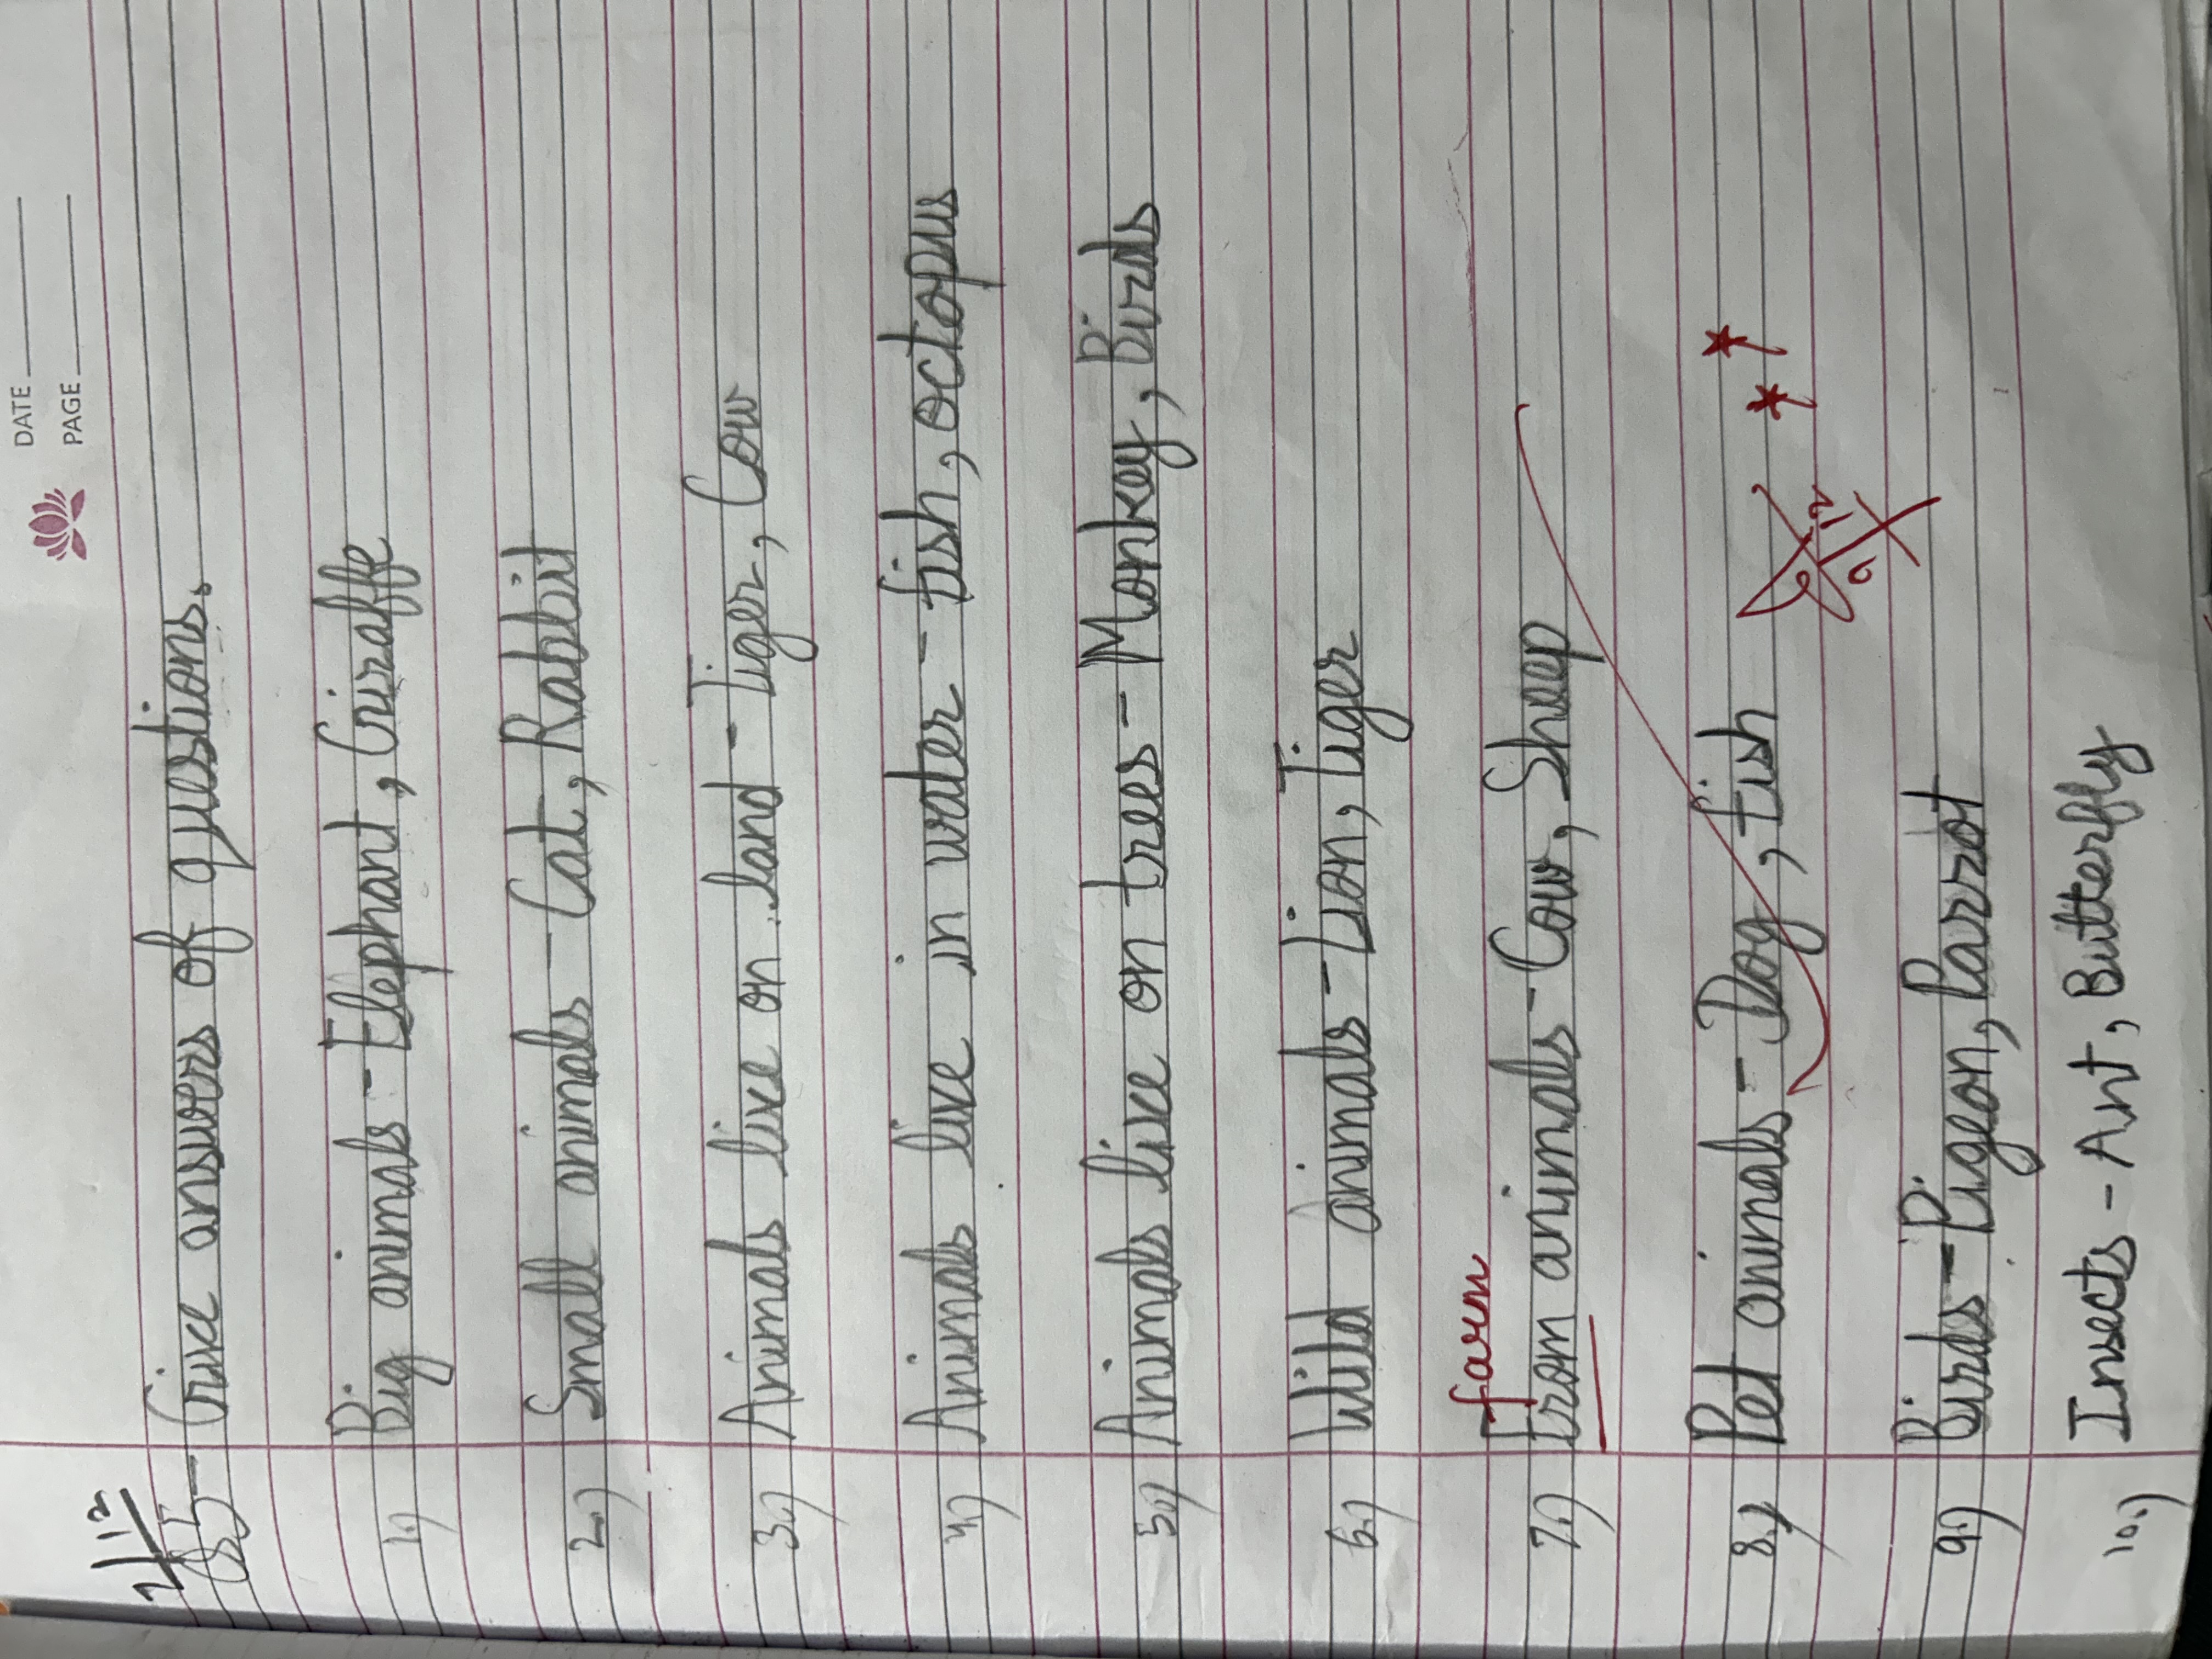 DATE
PAGE
2/12
Q5- Give answers of questions.
1.) Big animals - Elephant, Giraffe
2.) Small animals - Cat, Rabbit
3.) Animals live on land - Tiger, Cow
4.) Animals live in water - fish, octopus
5.) Animals live on trees - Monkey, Birds
6.) Wild animals - Lion, Tiger
farm
7.) From animals - Cow, Sheep
8.) Pet animals - Dog, fish
9.) Birds - Pigeon, Parrot
10.) Insects - Ant, Butterfly